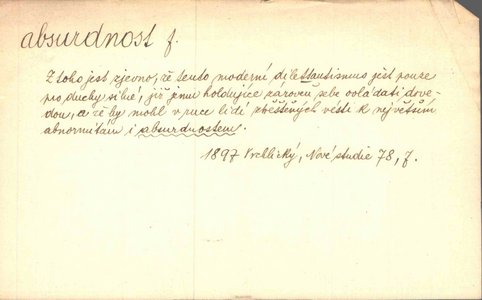 absurdnost f.
Z toho jest zjevno, že tento moderní dilettantismus jest pouze
pro duchy silné, již jemu holdujíce zároveň sebe ovládati dove-
dou, a že by mohl v ruce lidí zběsilých vésti k největším
abnormitám i absurdnostem.
1897 Vrchlický, Nové studie 78, f.